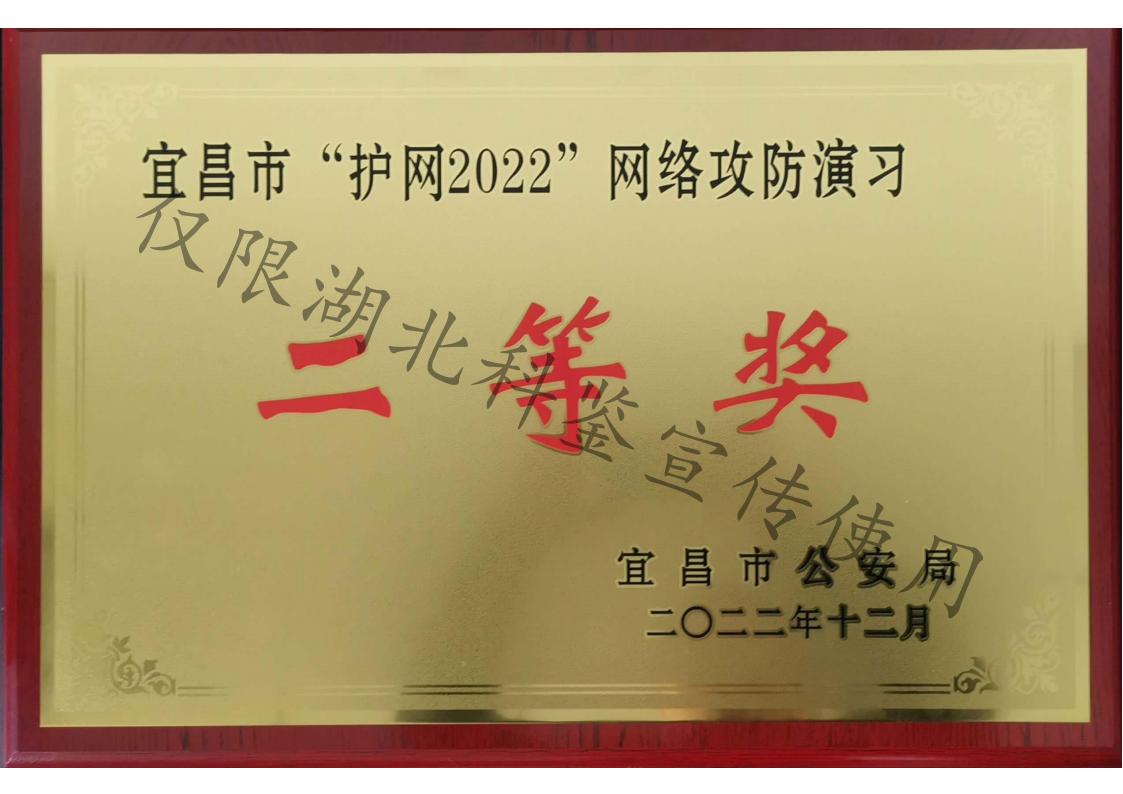 宜昌市“护网2022”网络攻防演习
二等奖
宜昌市公安局
二〇二二年十二月
仅限湖北科鉴宣传使用